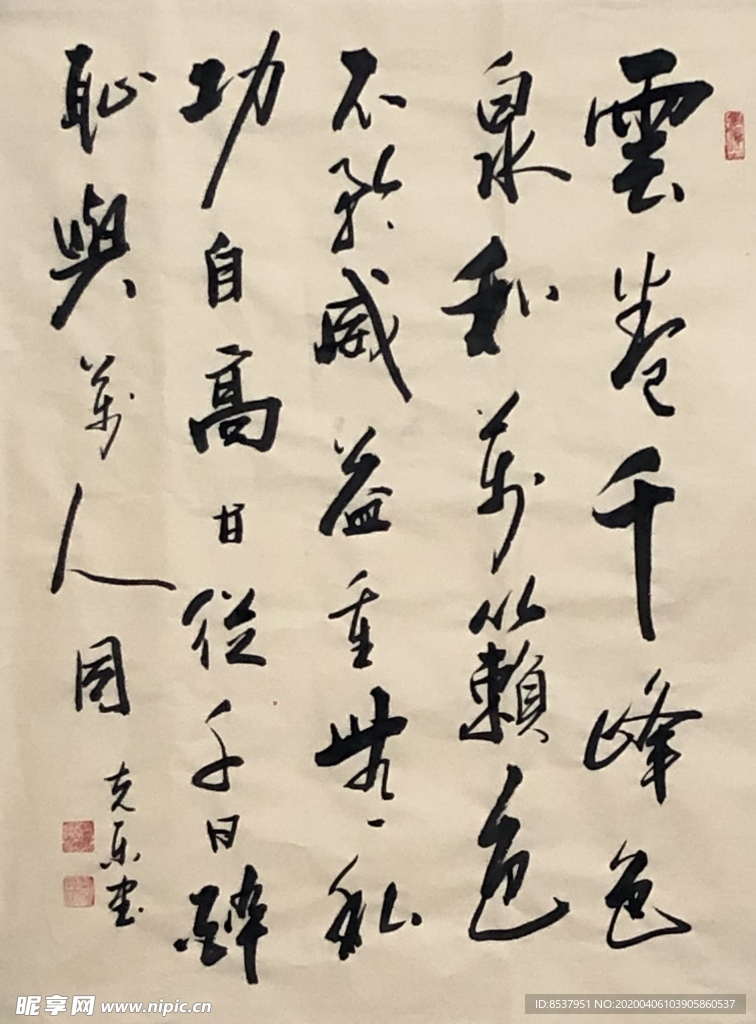 雲卷千峰色
泉和萬籟色
不矜威益重無私
功自高甘從千日醉
恥與萬人同
昵享网 www.nipic.cn
ID:8537951 NO:20200406103905860537